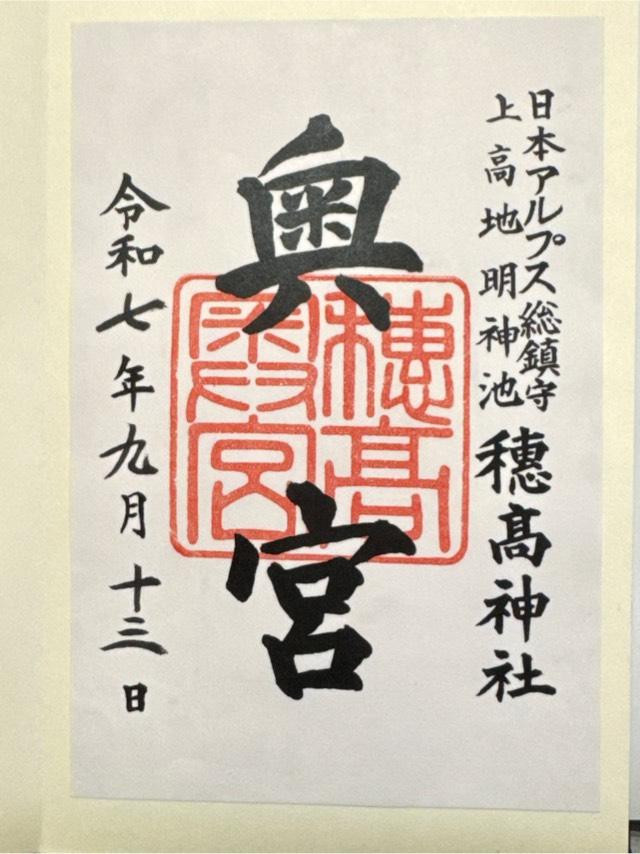 日本アルプス総鎮守
上高地明神池
穂髙神社
奥宮
穂髙
奥宮
令和七年九月十三日